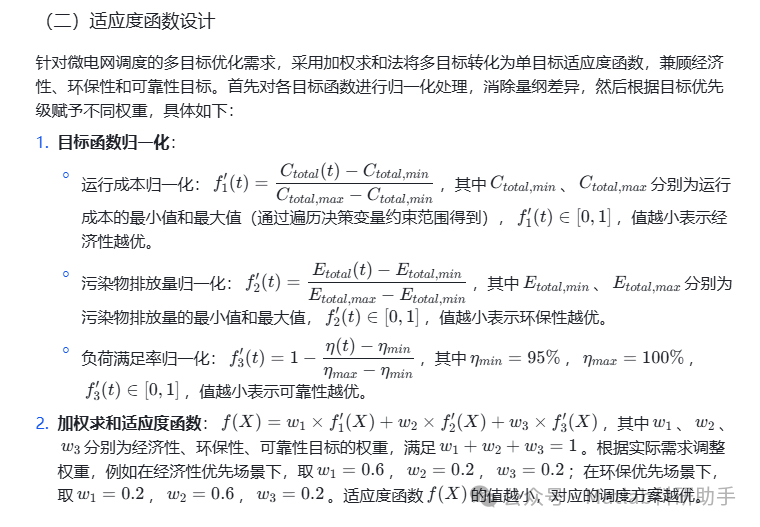 （二）适应度函数设计
针对微电网调度的多目标优化需求，采用加权求和法将多目标转化为单目标适应度函数，兼顾经济
性、环保性和可靠性目标。首先对各目标函数进行归一化处理，消除量纲差异，然后根据目标优先
级赋予不同权重，具体如下：
1. 目标函数归一化：
运行成本归一化： f₁′(t) = (C_total(t) − C_total,min) / (C_total,max − C_total,min) ，其中 C_total,min 、 C_total,max 分别为运行
成本的最小值和最大值（通过遍历决策变量约束范围得到）， f₁′(t) ∈ [0, 1] ，值越小表示经
济性越优。
污染物排放量归一化： f₂′(t) = (E_total(t) − E_total,min) / (E_total,max − E_total,min) ，其中 E_total,min 、 E_total,max 分别为
污染物排放量的最小值和最大值， f₂′(t) ∈ [0, 1] ，值越小表示环保性越优。
负荷满足率归一化： f₃′(t) = 1 − (η(t) − η_min) / (η_max − η_min) ，其中 η_min = 95% ， η_max = 100% ，
f₃′(t) ∈ [0, 1] ，值越小表示可靠性越优。
2. 加权求和适应度函数： f(X) = w₁ × f₁′(X) + w₂ × f₂′(X) + w₃ × f₃′(X) ，其中 w₁ 、 w₂ 、
w₃ 分别为经济性、环保性、可靠性目标的权重，满足 w₁ + w₂ + w₃ = 1 。根据实际需求调整
权重，例如在经济性优先场景下，取 w₁ = 0.6 ， w₂ = 0.2 ， w₃ = 0.2 ；在环保优先场景下，
取 w₁ = 0.2 ， w₂ = 0.6 ， w₃ = 0.2 。适应度函数 f(X) 的值越小，对应的调度方案越优。
科研助手